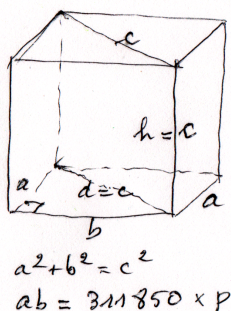 c
h = c
a
d = c
a
b
a² + b² = c²
ab = 311850 × p